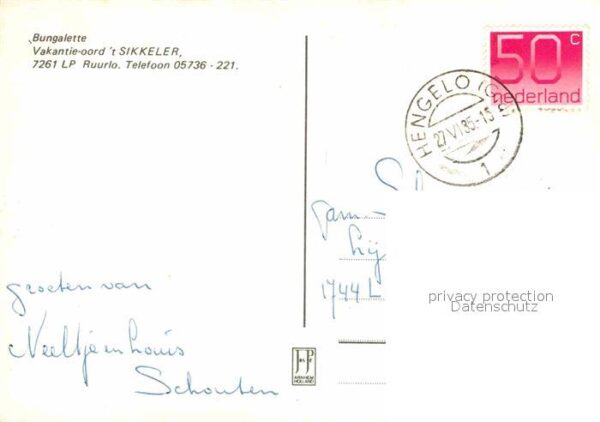 Bungalette
Vakantie-oord 't SIKKELER,
7261 LP Ruurlo. Telefoon 05736 - 221.
50 c
nederland
HENGELO (G
27 VI 85-15
1
fam
1744 L
privacy protection
Datenschutz
groeten van
Neeltje en
Schouten
JHP
ARNHEM
HOLLAND